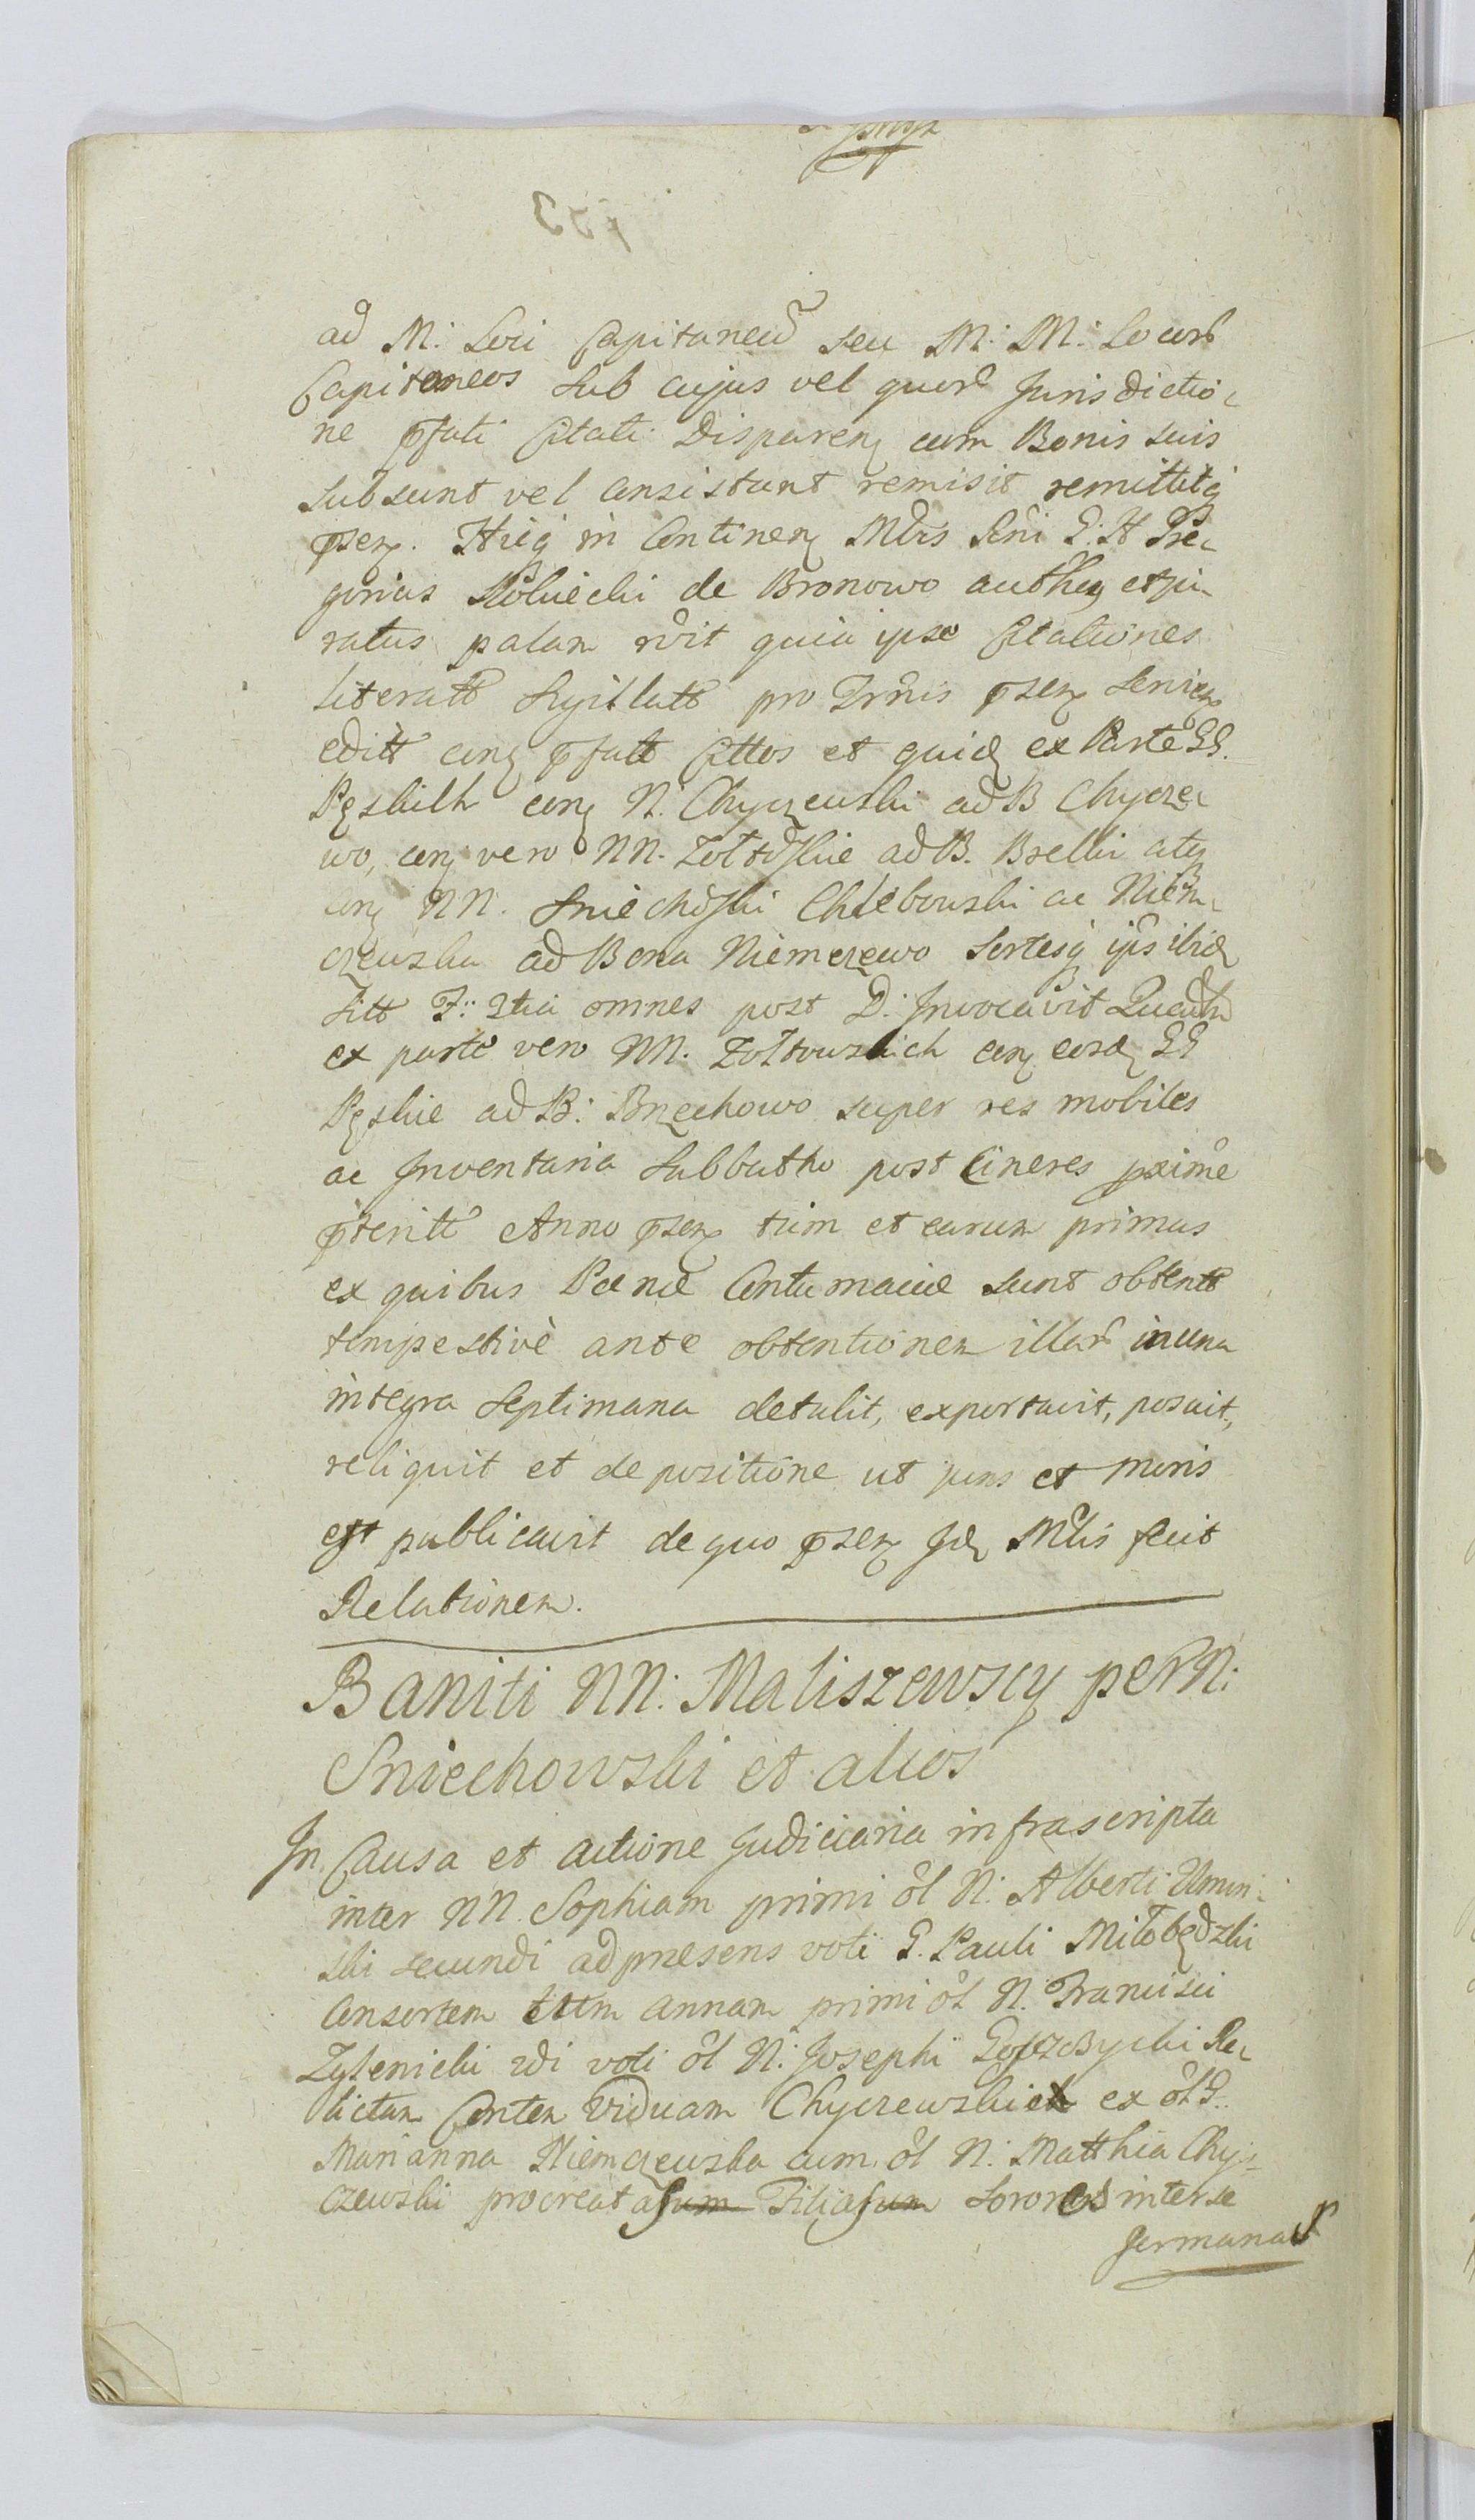 ad M: Loci Capitaneū seu M: M: Locorū
Capitaneos sub cujus vel quorū Jurisdictio-
ne pfati Citati Disparen cum Bonis suis
subsunt vel consistunt remisit remittitq
psen. Hicq in Continen Mtris Seni G: H Gre-
gorius Skolniecki de Bronowo authen et ju-
ratus palam rdit quia ipse Citationes
literatt Sigillatt pro Trnis psen Serien
editt con pfatt Cittos et quid ex Parte GG.
Pęskich con N. Chyczewski ad B Chycze-
wo, con vero NN. Zołtoskie ad B. Bselki ats
con NN. Sniechoski Chlebowski ac Niem-
czewska ad Bona Niemczewo Sortesq ips ibid
sitt F: 2tia omnes post D: Invocavit Quadra
ex parte vero NN. Zołtowskich con eosd GG
Pęskie ad B: Brzechowo super res mobiles
ac Inventaria Sabbatho post Cineres pxime
pteritt Anno psen tum et earum primas
ex quibus Pœnæ Contumaciæ sunt obtentæ
tempestivè ante obtentionem illarū in una
integra Septimana detulit, exportavit, posuit,
reliquit et de positione ut juris et moris
est publicavit de quo psen Jd Mtlis fecit
Relationem.
Baniti NN: Maliszewscy per N:
Sniechowski et alios
In Causa et actione Judiciaria infrascripta
inter NN. Sophiam primi ol N: Alberti Umin-
ski secundi ad præsens voti G. Pauli Miłobędzki
Consortem ttm Annam primi ol N. Francisci
Zyleniecki 2di voti ol N: Josephi Re-
lictam Conten Viduam Chyczewskich ex ol G.
Marianna Niemczewska cum ol N: Matthia Chy-
czewski procreatas Filias Sorores inter se
Germanas